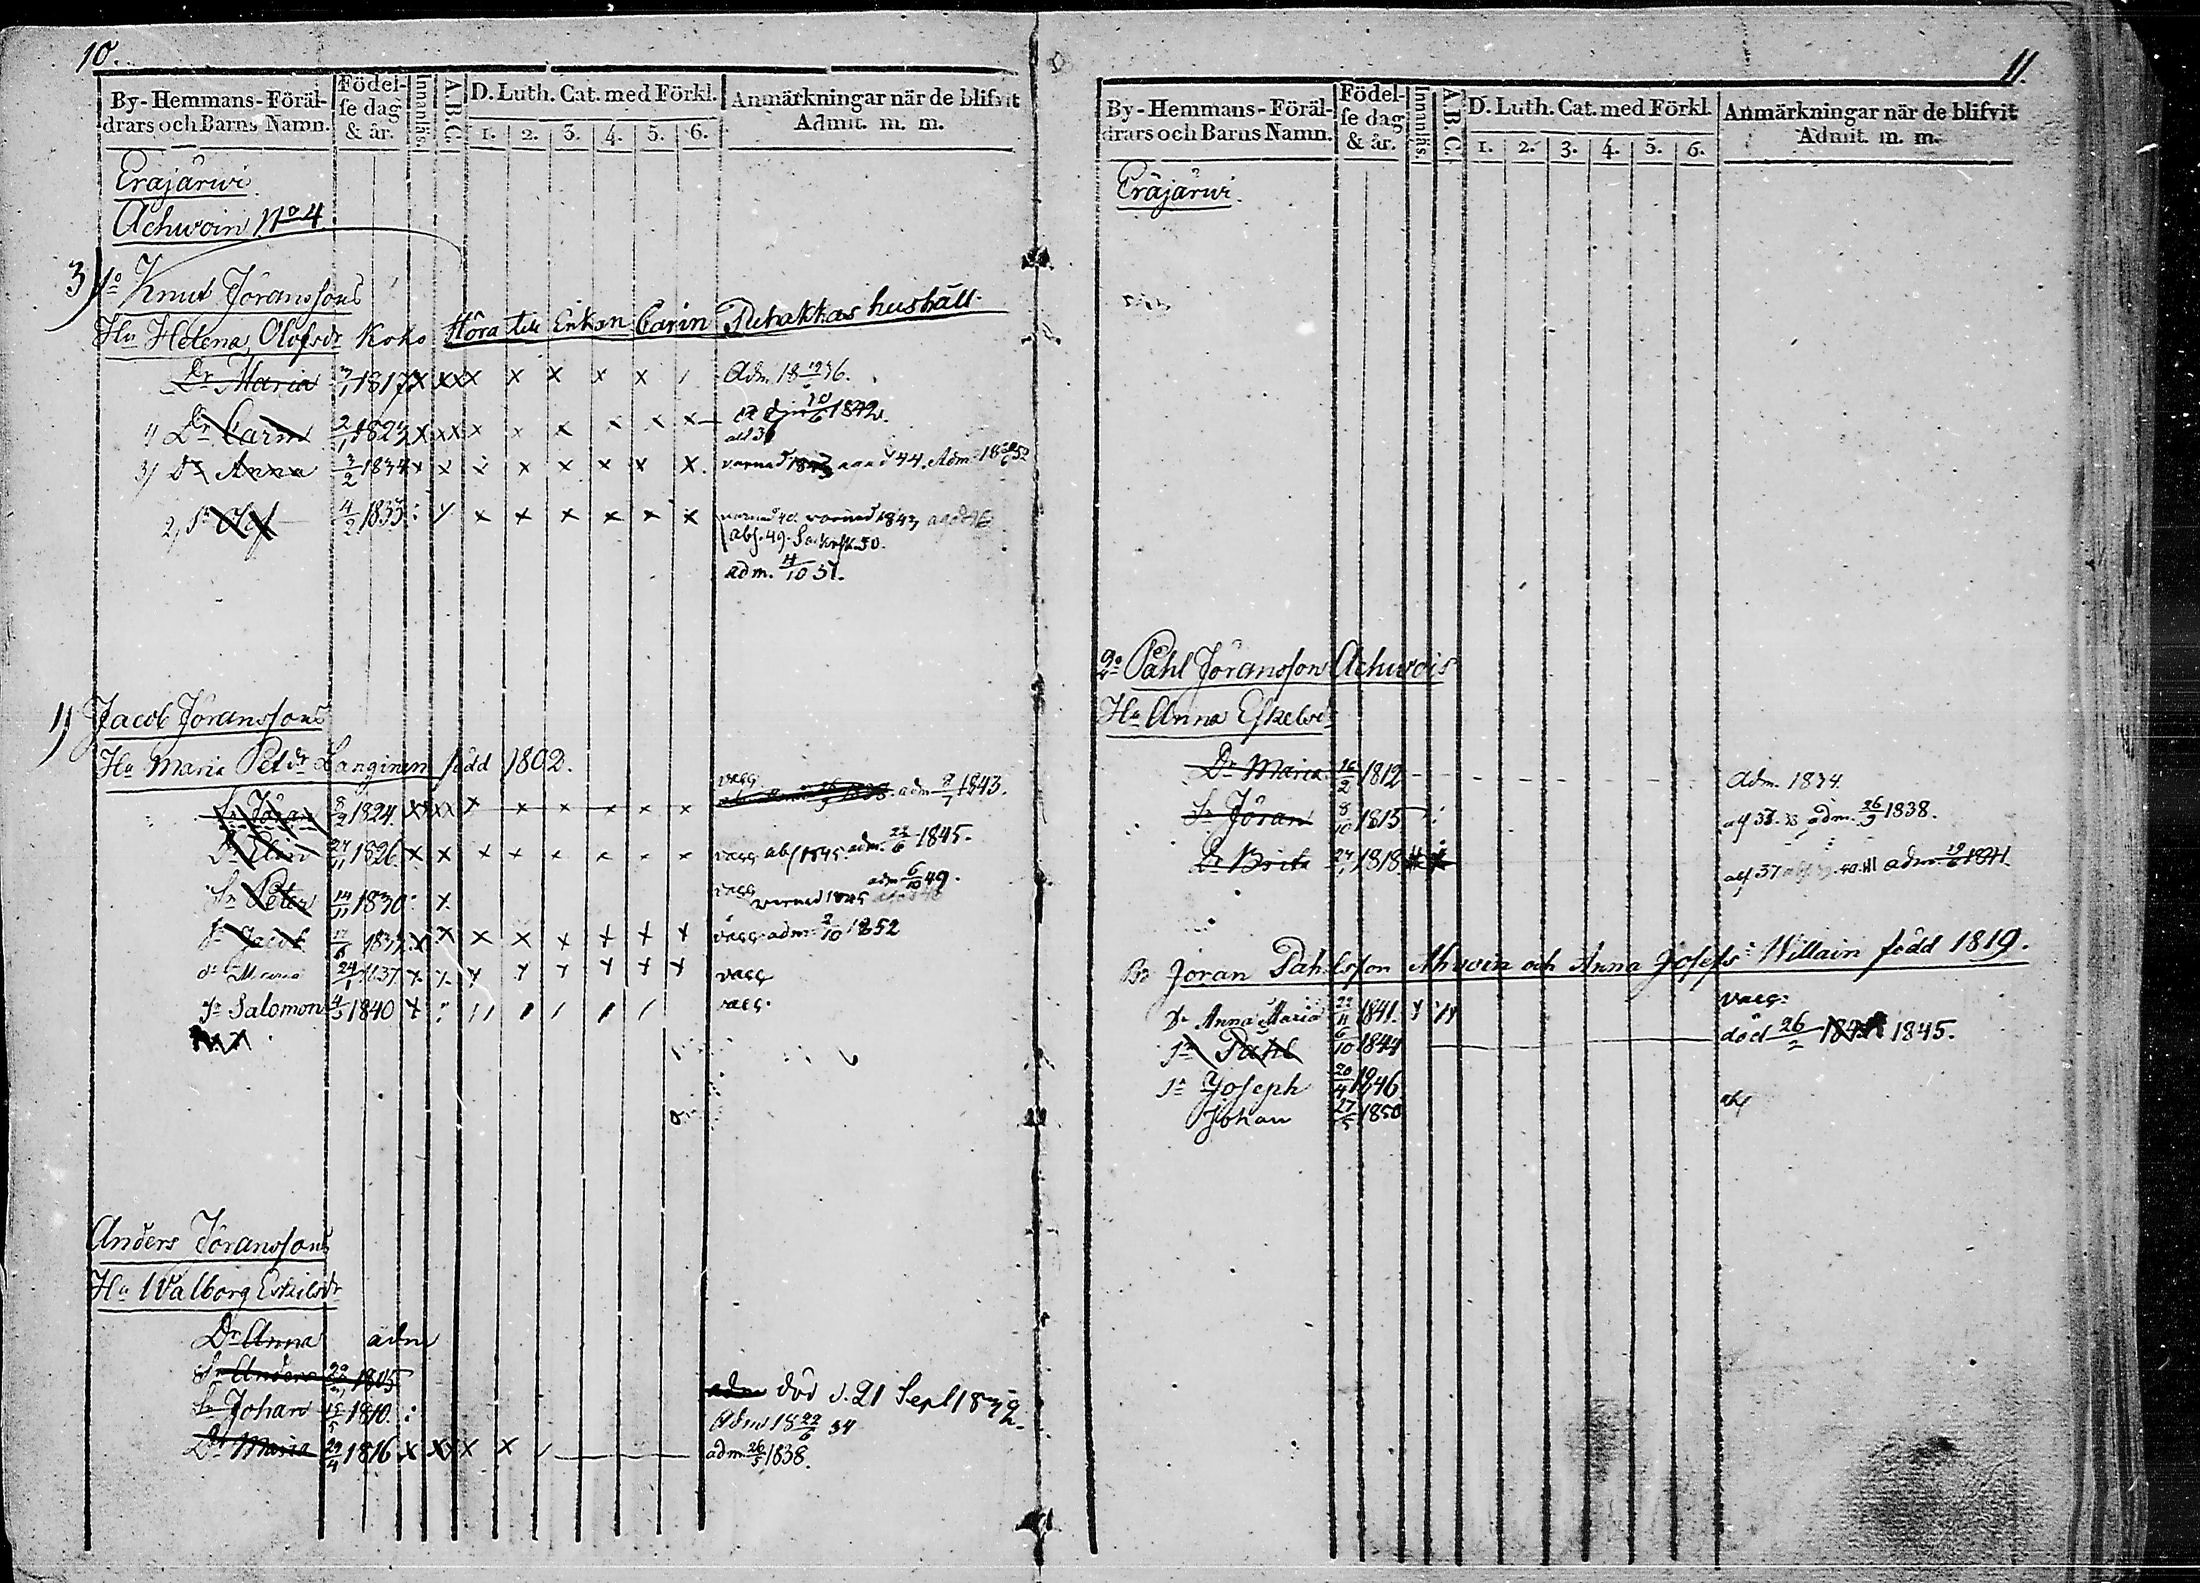 10.
By-Hemmans-Föräl-
drars och Barns Namn.
Födel-
se dag
& år.
Innanläs.
A.B.C.
D. Luth. Cat. med Förkl.
1. 2. 3. 4. 5. 6.
Anmärkningar när de blifvit
Admit. m. m.
Eräjärwi
Achwoin No 4
3) 1o Knut Jöranssons
Hu Helena Olofsdr Koko Höra till Enkan Carin Puhakkas hushåll.
Dr Maria 1817 x xx x x x x x Adm. 18 36.
4) Dr Carin 2/1 1824 x xx x x x x x x 1842.
3) Dr Anna 3/2 1834 x x x x x x x x varnad 1843 agad 44. Adm. 18 52
2) Sn Olof 4/2 1835 : x x x x x x varnad 40. varnad 1843
abs. 49. 50.
adm. 4/10 51.
1) Jacob Jöranssons
Hu Maria Petdr Langinen född 1802.
Sn Jöran 8/2 1824. xx xx x x x x x x vacc adm 9/7 1843.
Dr Elin 1826. x x x x x x x x vacc abs 1845. adm. 1845.
Sn Peter 14/11 1830 : x vacc varnad 1845 adm 6/10 49.
Sn Jacob 1834 x x x x x x x x vacc. adm. 2/10 1852
Dr Maria 24/1 1837 x x x x x x x x vacc
Sn Salomon 1840 x : vacc.
Anders Jöranssons
Hu Walborg Eskilsdr
Dr Anna adm
Sn Anders 1805
Sn Johan 15/5 1810. : adm död d. 21 Sept 1832
Adm 18 22/6 34
Dr Maria 29/4 1816 x xx x x adm 26/5 1838.
11.
By-Hemmans-Föräl-
drars och Barns Namn.
Födel-
se dag
& år.
Innanläs.
A.B.C.
D. Luth. Cat. med Förkl.
1. 2. 3. 4. 5. 6.
Anmärkningar när de blifvit
Admit. m. m.
Eräjärwi.
2o Påhl Jöransson Achwois
Hu Anna Eskelsdr
Dr Maria 16/2 1812 Adm. 1834.
Sn Jöran 8/10 1815 adm. 26/5 1838.
Dr Brita 1818 abs 37 adm 1841
Bo Jöran Påhlsson Ahwoin och Anna Josephs: Willain född 1819.
Dr Anna Maria 22/11 1841. vacc:
Sn Påhl 6/10 1844 död 26/2 1845.
Sn Joseph 20/4 1846
Johan 27/5 1850